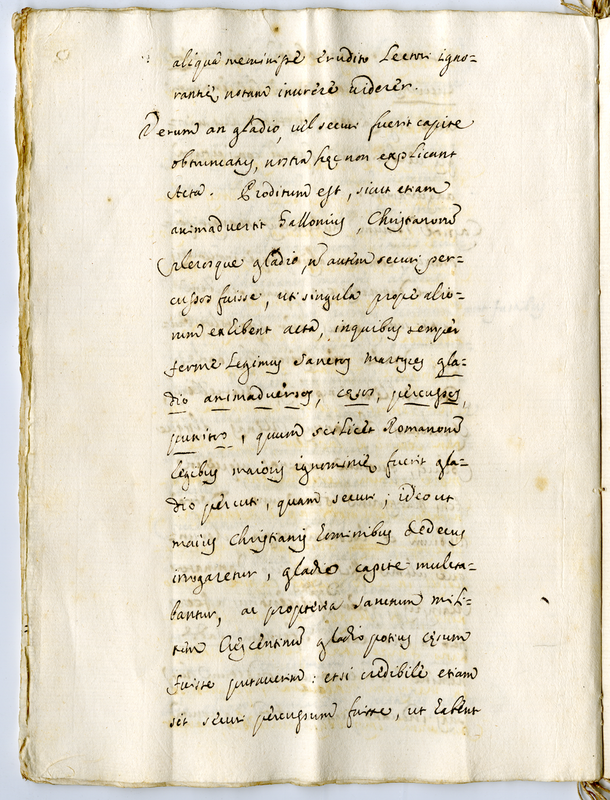 aliquā neminissē erudito Lectori igno=
rantię notam inurere viderer.
Verum an gladio, vel securi fuerit capite
obtruncatus, nostra hęc non explicant
Acta. Proditum est, sicut etiam
animadvertit Gallonius, Christianorū
plerosque gladio, nō autem securi per=
cussos fuisse, uti singula propè alio=
rum exhibent acta, in quibus semper
fermè Legimus Sanctos Martyres gla=
dio animadversos, cęsos, percussos,
punitos, quum scilicet Romanorū
legibus maioris ignominię fuerit gla=
dio percuti, quam securi; ideo ut
maius Christianis hominibus dedecus
irrogaretur, gladio capite mulcta=
bantur, ac propterea Sanctum mili=
tem Crescentinū gladio potius cęsum
fuisse putaverim: etsi credibile etiam
sit securi percussum fuisse, ut habent